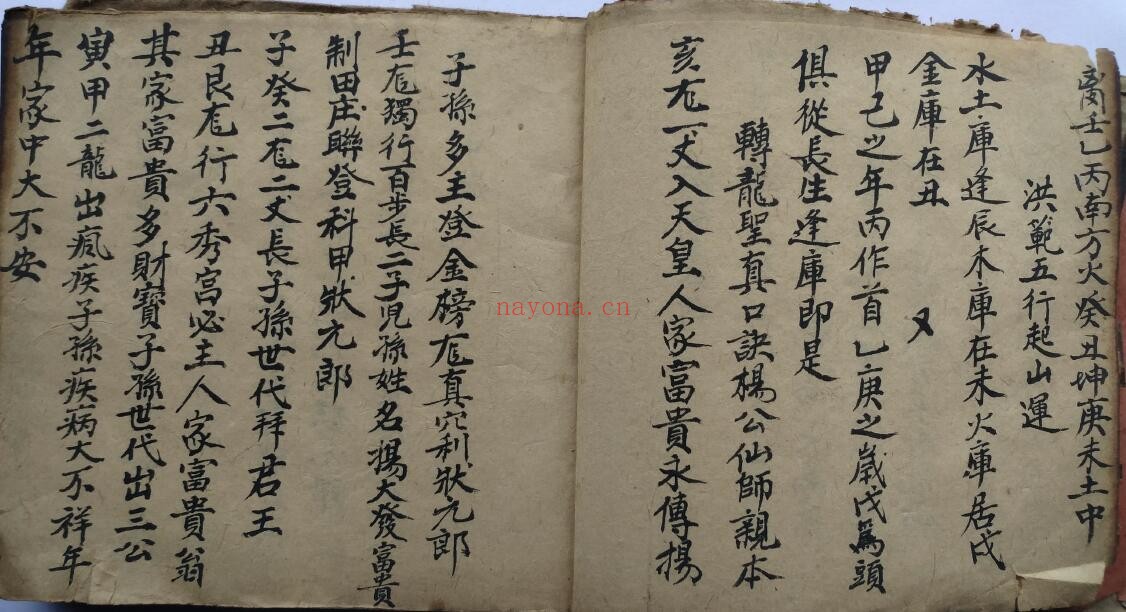 离壬乙丙南方火癸丑坤庚未土中
洪範五行起山運
水土庫逢辰木庫在未火庫居戌
金庫在丑
又
甲己之年丙作首乙庚之歲戊爲頭
俱從長生逢庫即是
轉龍聖真口訣楊公仙師親本
亥龙一丈入天皇人家富貴永傳揚
子孫多主登金榜龙真穴利狀元郎
壬龙獨行百步長二子児孫姓名揚大發富貴
制田庄聯登科甲狀元郎
子癸二龙二丈長子孫世代拜君王
丑艮龙行六秀宫必主人家富貴翁
其家富貴多財寶子孫世代出三公
寅甲二龍出瘋疾子孫疾病大不祥年
年家中大不安
nayona.cn